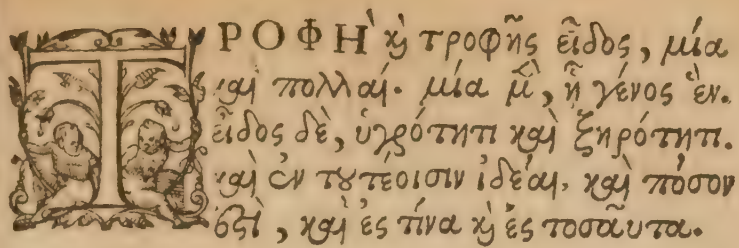 ΤΡΟΦΗ καὶ τροφῆς εἶδος, μία
καὶ πολλαί. μία μὲν, ᾗ γένος ἕν.
εἶδος δὲ, ὑγρότητι καὶ ξηρότητι.
καὶ ἐν τουτέοισιν ἰδέαι, καὶ πόσον
ἐστὶ, καὶ ἐς τίνα καὶ ἐς τοσαῦτα.